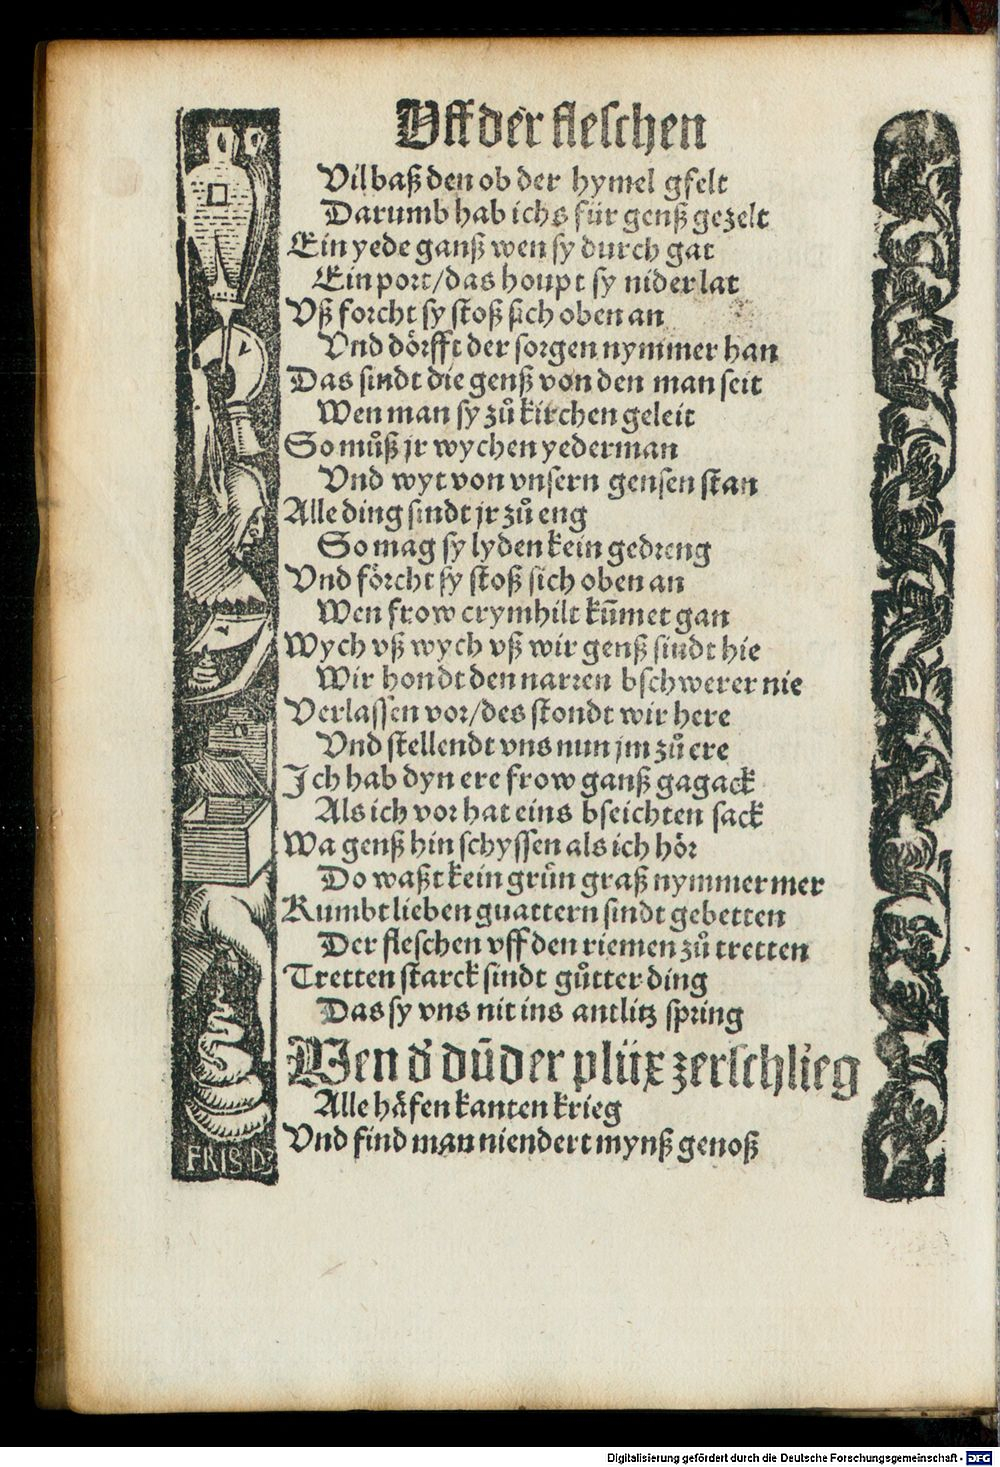 Uff der fleschen
Vil baß den ob der hymel gfelt
Darumb hab ichs für genß gezelt
Ein yede ganß wen sy durch gat
Ein port/das houpt sy nider lat
Vß forcht sy stoß sich oben an
Vnd dörfft der sorgen nymmer han
Das sindt die genß von den man seit
Wen man sy zů kirchen geleit
So můß jr wychen yederman
Vnd wyt von vnsern gensen stan
Alle ding sindt jr zů eng
So mag sy lyden kein gedreng
Vnd förcht sy stoß sich oben an
Wen frow crymhilt kūmet gan
Wych vß wych vß wir genß sindt hie
Wir hondt den narren bschwerer nie
Verlassen vor/des stondt wir here
Vnd stellendt vns nun jm zů ere
Ich hab dyn ere frow ganß gagack
Als ich vor hat eins bseichten sack
Wa genß hin schyssen als ich hör
Do waßt kein grůn graß nymmer mer
Kumbt lieben guattern sindt gebetten
Der fleschen vff den riemen zů tretten
Tretten starck sindt gůtter ding
Das sy vns nit ins antlitz spring
Wen d' dūder plüx zerschlieg
Alle häfen kanten krieg
Vnd find man niendert mynß genoß
FRIS DZ
Digitalisierung gefördert durch die Deutsche Forschungsgemeinschaft - DFG